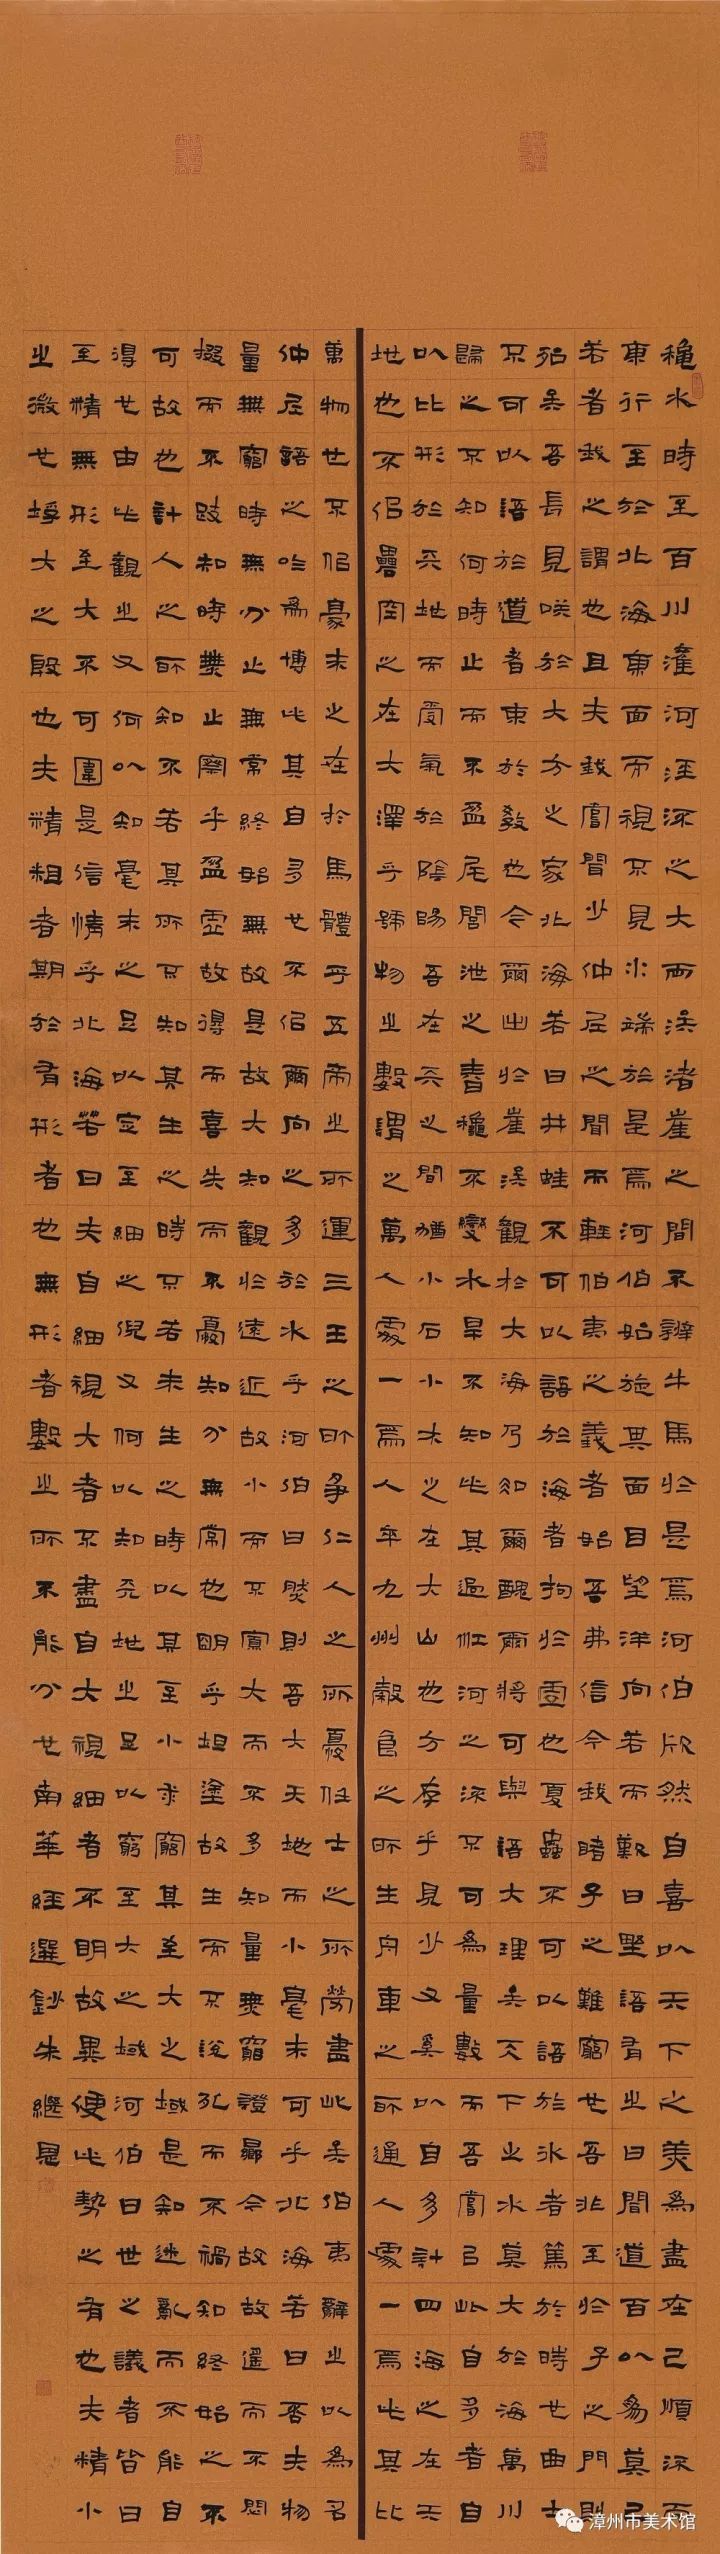 穐水時至百川灌河涇流之大兩涘渚崖之間不辯牛馬於是焉河伯欣然自喜以天下之美為盡在己順流而
東行至於北海東面而視不見水端於是焉河伯始旋其面目望洋向若而歎曰野語有之曰聞道百以為莫己
若者我之謂也且夫我嘗聞少仲尼之聞而輕伯夷之義者始吾弗信今我睹子之難窮也吾非至於子之門則
殆矣吾長見咲於大方之家北海若曰井蛙不可以語於海者拘於虛也夏蟲不可以語於冰者篤於時也曲士
不可以語於道者束於教也今爾出於崖涘觀於大海乃知爾醜爾將可與語大理矣天下之水莫大於海萬川
歸之不知何時止而不盈尾閭泄之春穐不變水旱不知此其過江河之流不可為量數而吾嘗以此自多者自
以比形於天地而受氣於陰陽吾在天之間猶小石小木之在大山也方存乎見少又奚以自多計四海之在天
地也不似礨空之在大澤乎號物之數謂之萬人處一焉人卒九州穀食之所生舟車之所通人處一焉此其比
萬物也不似豪末之在於馬體乎五帝之所運三王之所爭仁人之所憂任士之所勞盡此矣伯夷辭之以為名
仲尼語之以為博此其自多也不似爾向之多於水乎河伯曰然則吾大天地而小毫末可乎北海若曰否夫物
量無窮時無分止無常終始無故是故大知觀於遠近故小而不寡大而不多知量無窮證曏今故故遙而不悶
掇而不跂知時無止察乎盈虛故得而喜失而不憂知分無常也明乎坦塗故生而不說死而不禍知終始之不
可故也計人之所知不若其所不知其生之時不若未生之時以其至小求窮其至大之域是知迷亂而不能自
得也由此觀之又何以知毫末之足以定至細之倪又何以知天地之足以窮至大之域河伯曰世之議者皆曰
至精無形至大不可圍是信情乎北海若曰夫自細視大者不盡自大視細者不明故異便此勢之有也夫精小
之微也垺大之殷也夫精粗者期於有形者也無形者數之所不能分也南華經選鈔朱繼恩
漳州市美术馆